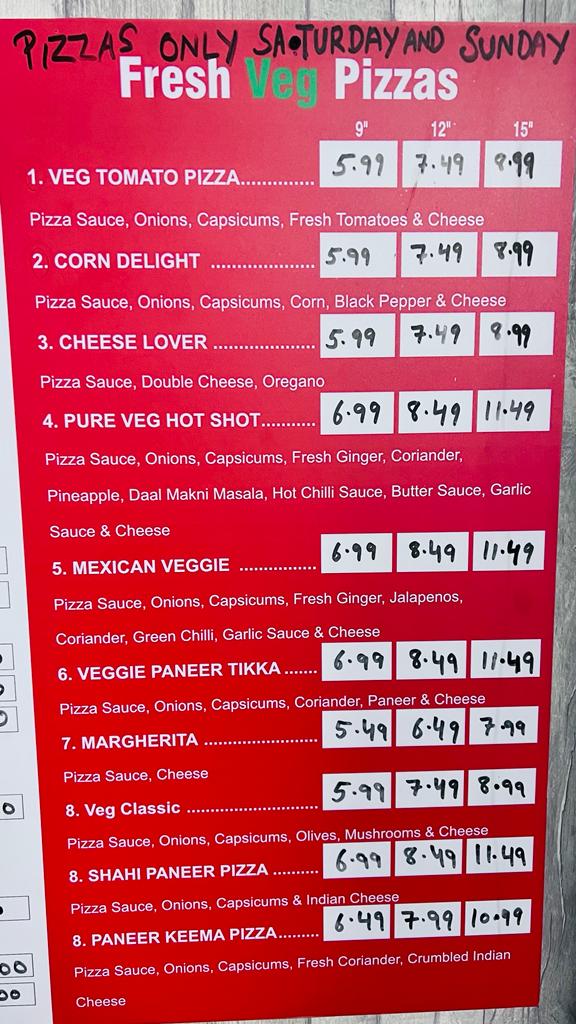 PIZZAS ONLY SATURDAY AND SUNDAY
Fresh Veg Pizzas
9" 12" 15"
1. VEG TOMATO PIZZA.............. 5.99 7.49 8.99
Pizza Sauce, Onions, Capsicums, Fresh Tomatoes & Cheese
2. CORN DELIGHT .................... 5.99 7.49 8.99
Pizza Sauce, Onions, Capsicums, Corn, Black Pepper & Cheese
3. CHEESE LOVER .................... 5.99 7.49 8.99
Pizza Sauce, Double Cheese, Oregano
4. PURE VEG HOT SHOT........... 6.99 8.49 11.49
Pizza Sauce, Onions, Capsicums, Fresh Ginger, Coriander,
Pineapple, Daal Makni Masala, Hot Chilli Sauce, Butter Sauce, Garlic
Sauce & Cheese
5. MEXICAN VEGGIE ................ 6.99 8.49 11.49
Pizza Sauce, Onions, Capsicums, Fresh Ginger, Jalapenos,
Coriander, Green Chilli, Garlic Sauce & Cheese
6. VEGGIE PANEER TIKKA ....... 6.99 8.49 11.49
Pizza Sauce, Onions, Capsicums, Coriander, Paneer & Cheese
7. MARGHERITA ....................... 5.49 6.49 7.99
Pizza Sauce, Cheese
8. Veg Classic .......................... 5.99 7.49 8.99
Pizza Sauce, Onions, Capsicums, Olives, Mushrooms & Cheese
8. SHAHI PANEER PIZZA .......... 6.99 8.49 11.49
Pizza Sauce, Onions, Capsicums & Indian Cheese
8. PANEER KEEMA PIZZA......... 6.49 7.99 10.99
Pizza Sauce, Onions, Capsicums, Fresh Coriander, Crumbled Indian
Cheese